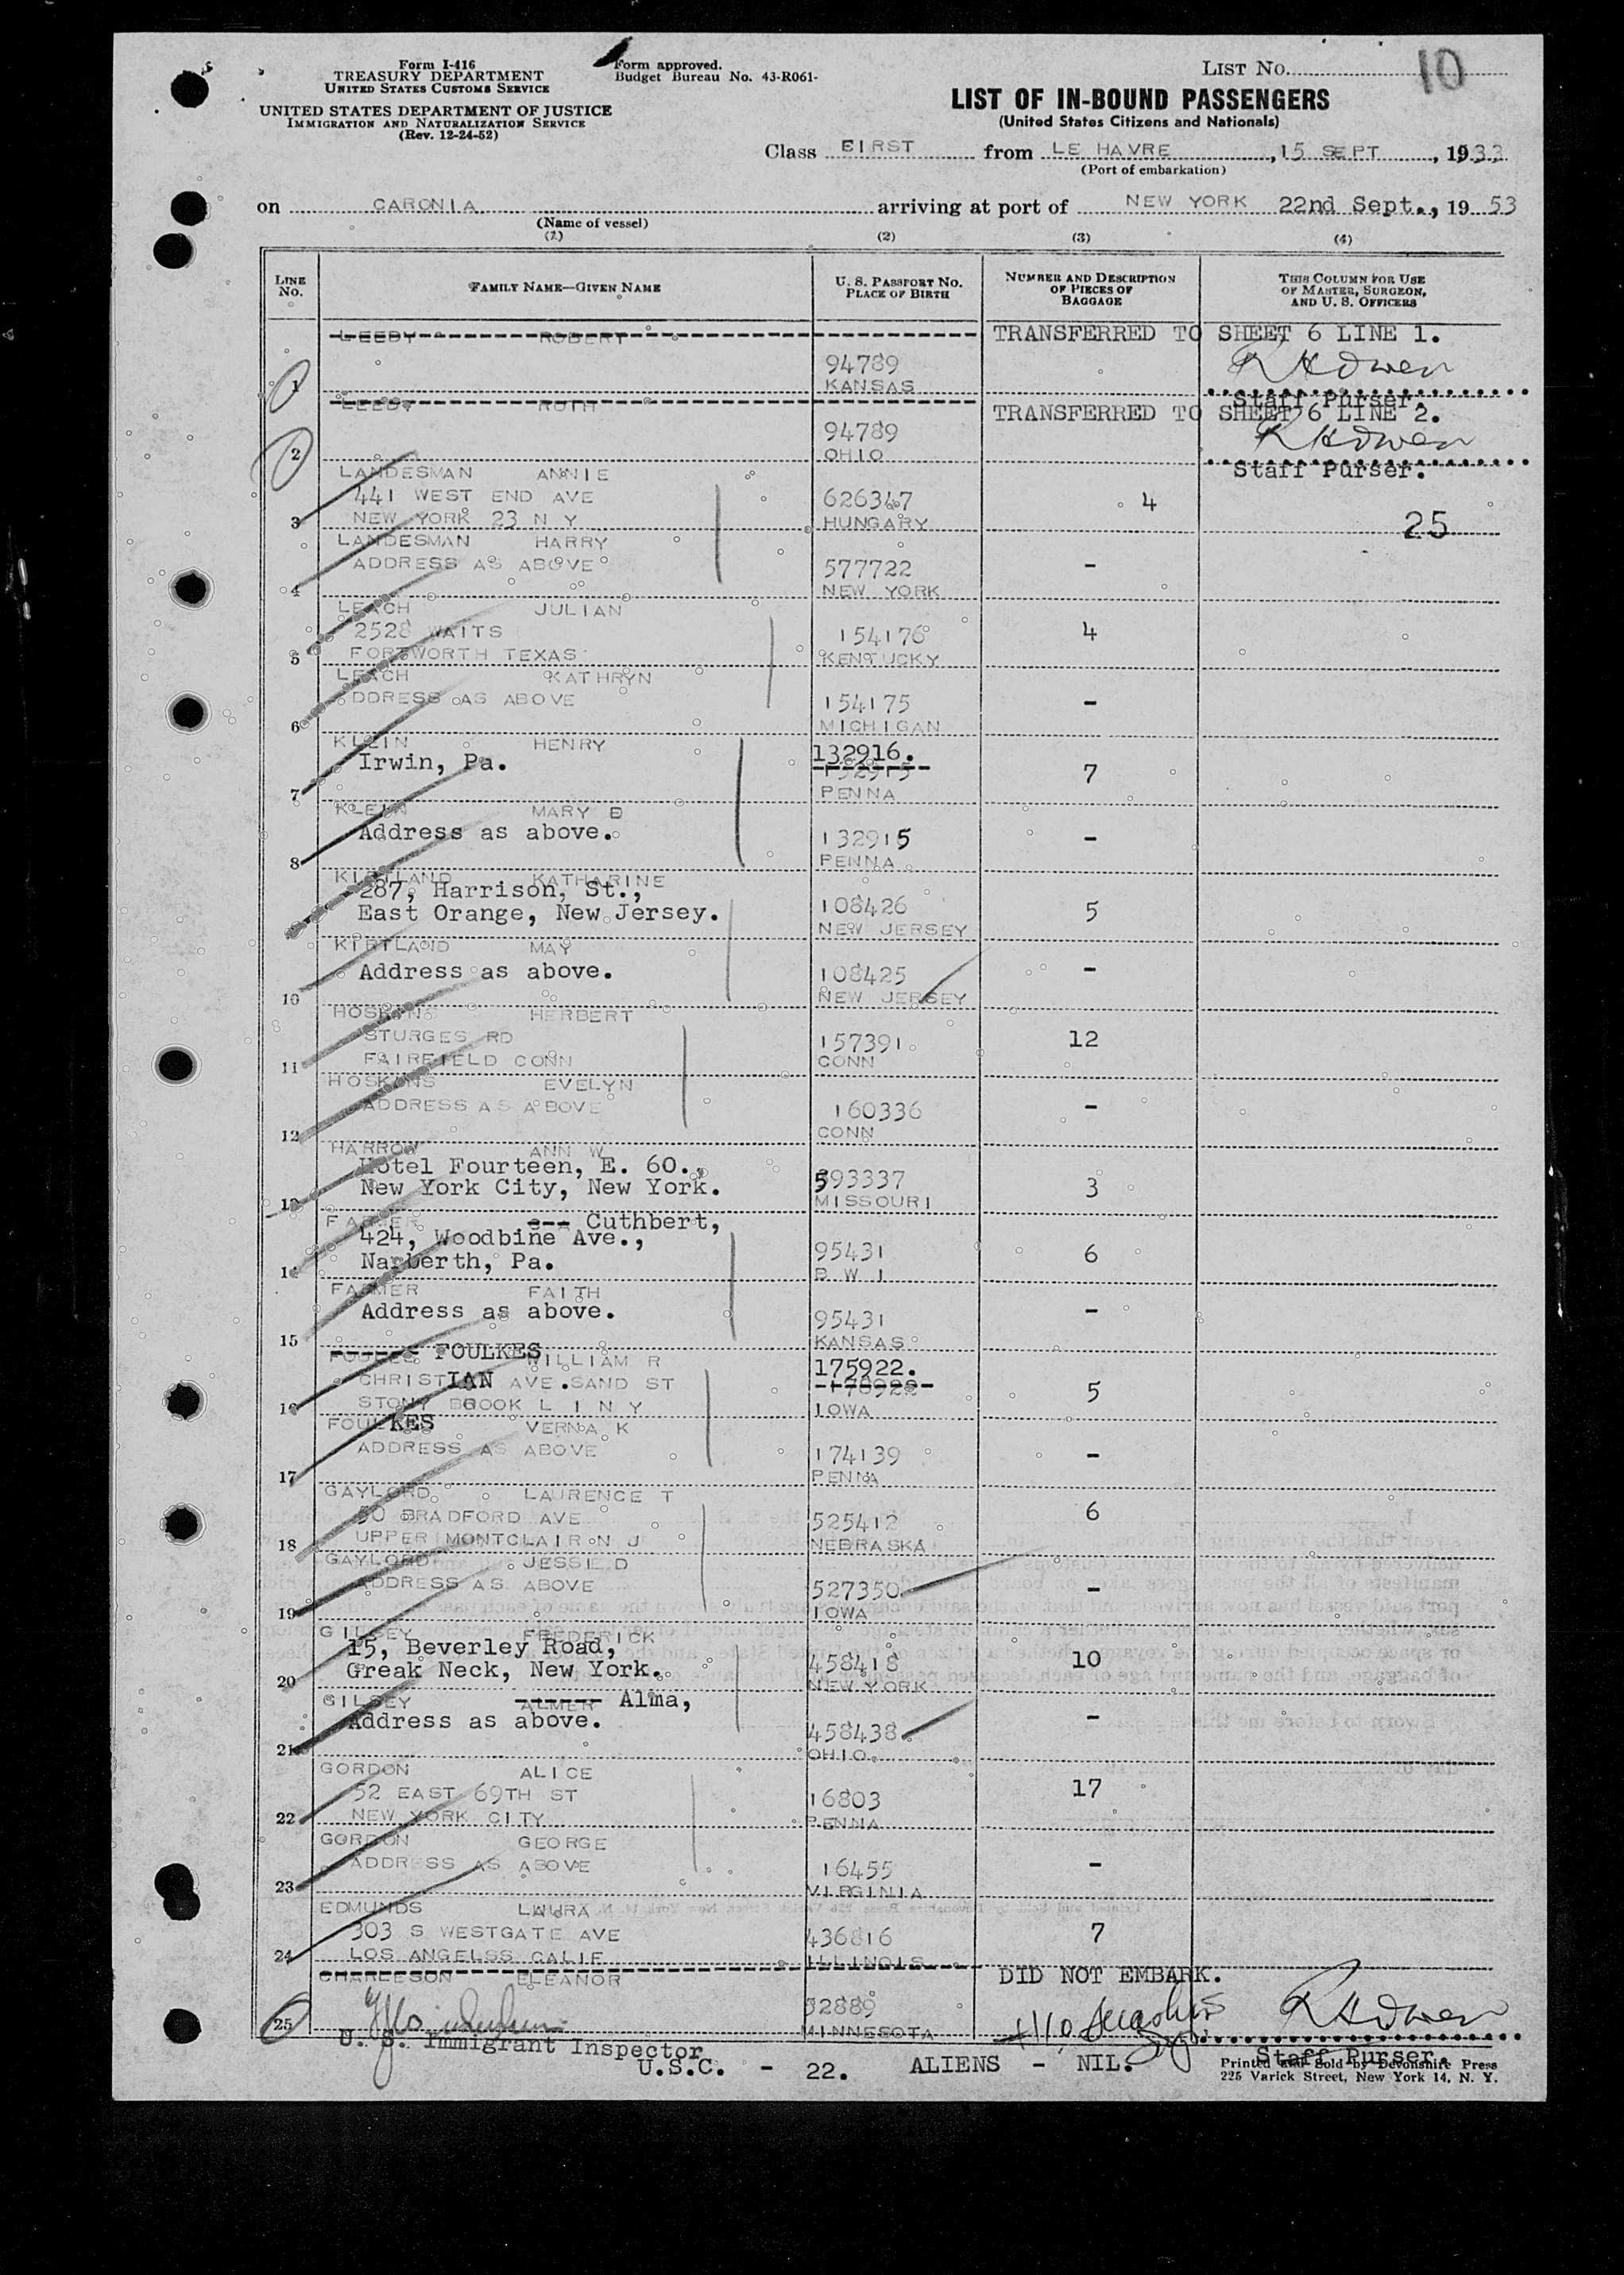 Form I-416
TREASURY DEPARTMENT
UNITED STATES CUSTOMS SERVICE
UNITED STATES DEPARTMENT OF JUSTICE
IMMIGRATION AND NATURALIZATION SERVICE
(Rev. 12-24-52)
Form approved.
Budget Bureau No. 43-R061-
LIST No. 10
LIST OF IN-BOUND PASSENGERS
(United States Citizens and Nationals)
Class EIRST from LE HAVRE, 15 SEPT, 1933
(Port of embarkation)
on CARONIA arriving at port of NEW YORK 22nd Sept., 19 53
(Name of vessel)
(1) (2) (3) (4)
LINE No. FAMILY NAME—GIVEN NAME U. S. PASSPORT NO. PLACE OF BIRTH NUMBER AND DESCRIPTION OF PIECES OF BAGGAGE THIS COLUMN FOR USE OF MASTER, SURGEON, AND U. S. OFFICERS
LEEDY ROBERT TRANSFERRED TO SHEET 6 LINE 1.
94789 R H Owen
1 KANSAS Staff Purser.
LEEDY RUTH TRANSFERRED TO SHEET 6 LINE 2.
94789 R H Owen
2 OHIO Staff Purser.
LANDESMAN ANNIE
441 WEST END AVE 626367 4
3 NEW YORK 23 N Y HUNGARY 25
LANDESMAN HARRY
ADDRESS AS ABOVE 577722 -
4 NEW YORK
LEACH JULIAN
2528 WAITS 154176 4
5 FORTWORTH TEXAS KENTUCKY
LEACH KATHRYN
DDRESS AS ABOVE 154175 -
6 MICHIGAN
KLEIN HENRY 132916.
Irwin, Pa. 132915 7
7 PENNA
KLEIN MARY B
Address as above. 132915 -
8 PENNA
KIRTLAND KATHARINE
287, Harrison, St., 108426 5
East Orange, New Jersey. NEW JERSEY
KIRTLAND MAY
Address as above. 108425 -
10 NEW JERSEY
HOSKINS HERBERT
STURGES RD 157391 12
11 FAIRFIELD CONN CONN
HOSKINS EVELYN
ADDRESS AS ABOVE 160336 -
12 CONN
HARROW ANN W
Hotel Fourteen, E. 60., 593337 3
13 New York City, New York. MISSOURI
FARMER Cuthbert,
424, Woodbine Ave., 95431 6
14 Narberth, Pa. B W I
FARMER FAITH
Address as above. 95431 -
15 KANSAS
FOULKES WILLIAM R 175922.
CHRISTIAN AVE.SAND ST 5
16 STONY BROOK L I N Y IOWA
FOULKES VERNA K
ADDRESS AS ABOVE 174139 -
17 PENNA
GAYLORD LAURENCE T
50 BRADFORD AVE 525412 6
18 UPPER MONTCLAIR N J NEBRASKA
GAYLORD JESSIE D
ADDRESS AS ABOVE 527350 -
19 IOWA
GILSEY FREDERICK
15, Beverley Road, 458418 10
20 Greak Neck, New York. NEW YORK
GILSEY ALMER Alma,
Address as above. 458438 -
21 OHIO
GORDON ALICE
52 EAST 69TH ST 16803 17
22 NEW YORK CITY PENNA
GORDON GEORGE
ADDRESS AS ABOVE 16455 -
23 VIRGINIA
EDMUNDS LAURA
303 S WESTGATE AVE 436816 7
24 LOS ANGELSS CALIF ILLINOIS
CHARLESON ELEANOR DID NOT EMBARK.
52889 R H Owen
25 MINNESOTA
U. S. Immigrant Inspector Staff Purser.
U.S.C. - 22. ALIENS - NIL.
Printed and Sold by Devonshire Press
225 Varick Street, New York 14, N. Y.